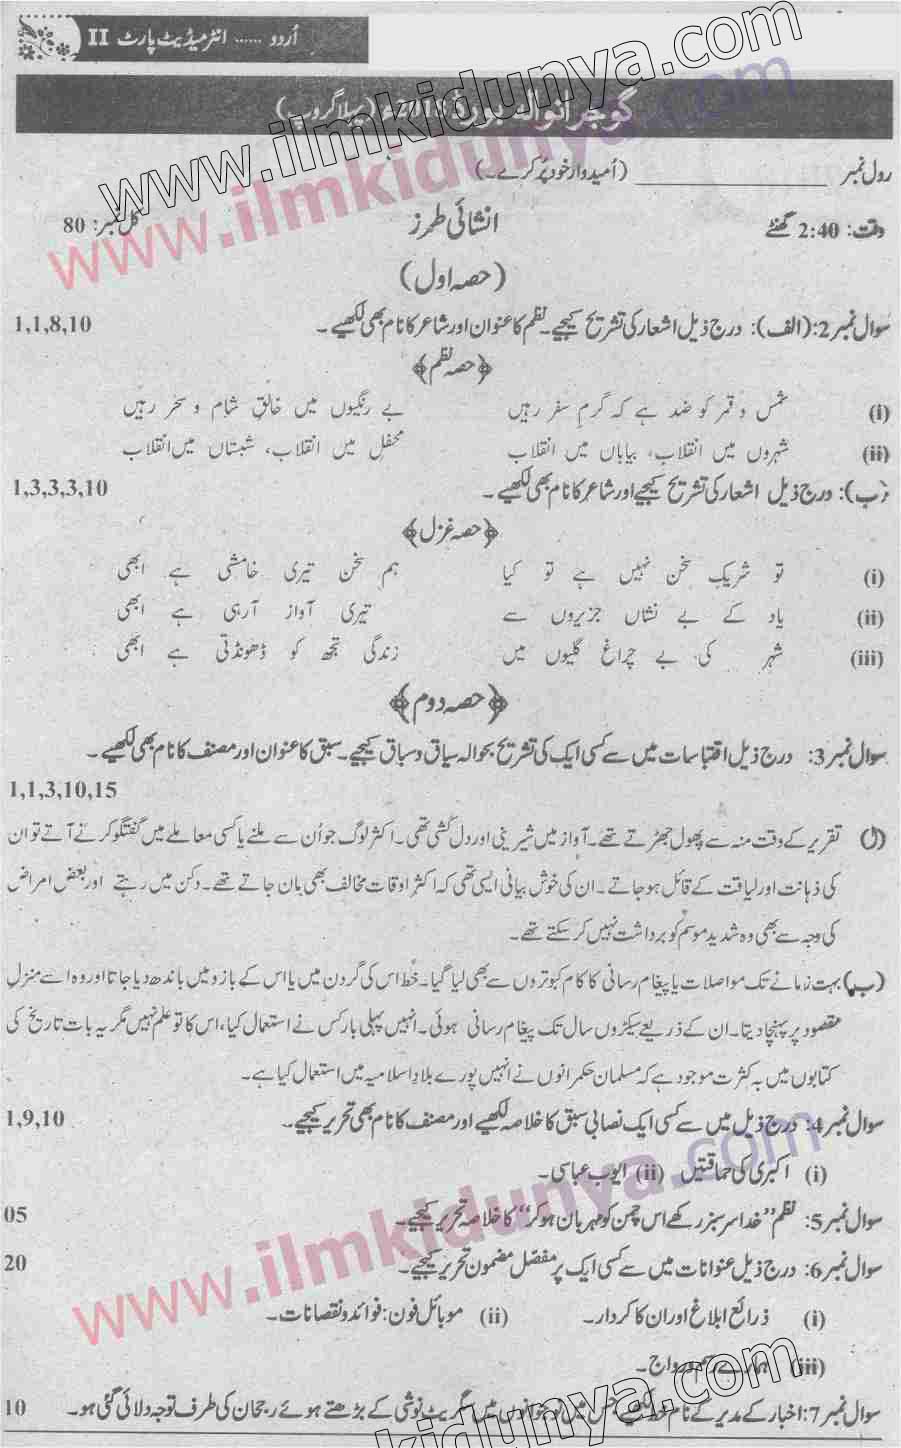 اُردو ...... انٹرمیڈیٹ پارٹ II
گوجرانوالہ بورڈ 2018ء (پہلا گروپ)
رول نمبر ____________ (اُمیدوار خود پُر کرے۔)
وقت: 2:40 گھنٹے انشائی طرز کل نمبر: 80
(حصہ اول)
سوال نمبر 2: (الف): درج ذیل اشعار کی تشریح کیجیے۔ نظم کا عنوان اور شاعر کا نام بھی لکھیے۔ 1,1,8,10
﴿حصہ نظم﴾
(i) شمس و قمر کو ضد ہے کہ گرمِ سفر رہیں بے رنگیوں میں خالقِ شام و سحر رہیں
(ii) شہروں میں انقلاب، بیاباں میں انقلاب محفل میں انقلاب، شبستاں میں انقلاب
(ب): درج ذیل اشعار کی تشریح کیجیے اور شاعر کا نام بھی لکھیے۔ 1,3,3,3,10
﴿حصہ غزل﴾
(i) تو شریکِ سخن نہیں ہے تو کیا ہم سخن تیری خامشی ہے ابھی
(ii) یاد کے بے نشاں جزیروں سے تیری آواز آرہی ہے ابھی
(iii) شہر کی بے چراغ گلیوں میں زندگی تجھ کو ڈھونڈتی ہے ابھی
﴿حصہ دوم﴾
سوال نمبر 3: درج ذیل اقتباسات میں سے کسی ایک کی تشریح بحوالہ سیاق و سباق کیجیے۔ سبق کا عنوان اور مصنف کا نام بھی لکھیے۔
1,1,3,10,15
(ا) تقریر کے وقت منہ سے پھول جھڑتے تھے۔ آواز میں شیرینی اور دل کشی تھی۔ اکثر لوگ جو اُن سے ملنے یا کسی معاملے میں گفتگو کرنے آتے تو ان
کی ذہانت اور لیاقت کے قائل ہو جاتے۔ ان کی خوش بیانی ایسی تھی کہ اکثر اوقات مخالف بھی مان جاتے تھے۔ دکن میں رہتے اور بعض امراض
کی وجہ سے بھی وہ شدید موسم کو برداشت نہیں کر سکتے تھے۔
(ب) بہت زمانے تک مواصلات یا پیغام رسانی کا کام کبوتروں سے بھی لیا گیا۔ خط اس کی گردن میں یا اس کے بازو میں باندھ دیا جاتا اور وہ اسے منزلِ
مقصود پر پہنچا دیتا۔ ان کے ذریعے سیکڑوں سال تک پیغام رسانی ہوئی۔ انہیں پہلی بار کس نے استعمال کیا، اس کا تو علم نہیں مگر یہ بات تاریخ کی
کتابوں میں بہ کثرت موجود ہے کہ مسلمان حکمرانوں نے انہیں پورے بلادِ اسلامیہ میں استعمال کیا ہے۔
سوال نمبر 4: درج ذیل میں سے کسی ایک نصابی سبق کا خلاصہ لکھیے اور مصنف کا نام بھی تحریر کیجیے۔ 1,9,10
(i) اکبری کی حماقتیں (ii) ایوب عباسی۔
سوال نمبر 5: نظم "خدا سرسبز رکھے اس چمن کو مہرباں ہو کر" کا خلاصہ تحریر کیجیے۔ 05
سوال نمبر 6: درج ذیل عنوانات میں سے کسی ایک پر مفصل مضمون تحریر کیجیے۔ 20
(i) ذرائع ابلاغ اور ان کا کردار۔ (ii) موبائل فون: فوائد و نقصانات۔
(iii) ہمارے رسم و رواج۔
سوال نمبر 7: اخبار کے مدیر کے نام خط لکھیے، جس میں نوجوانوں میں سگریٹ نوشی کے بڑھتے ہوئے رجحان کی طرف توجہ دلائی گئی ہو۔ 10
www.ilmkidunya.com
www.ilmkidunya.com
www.ilmkidunya.com
www.ilmkidunya.com